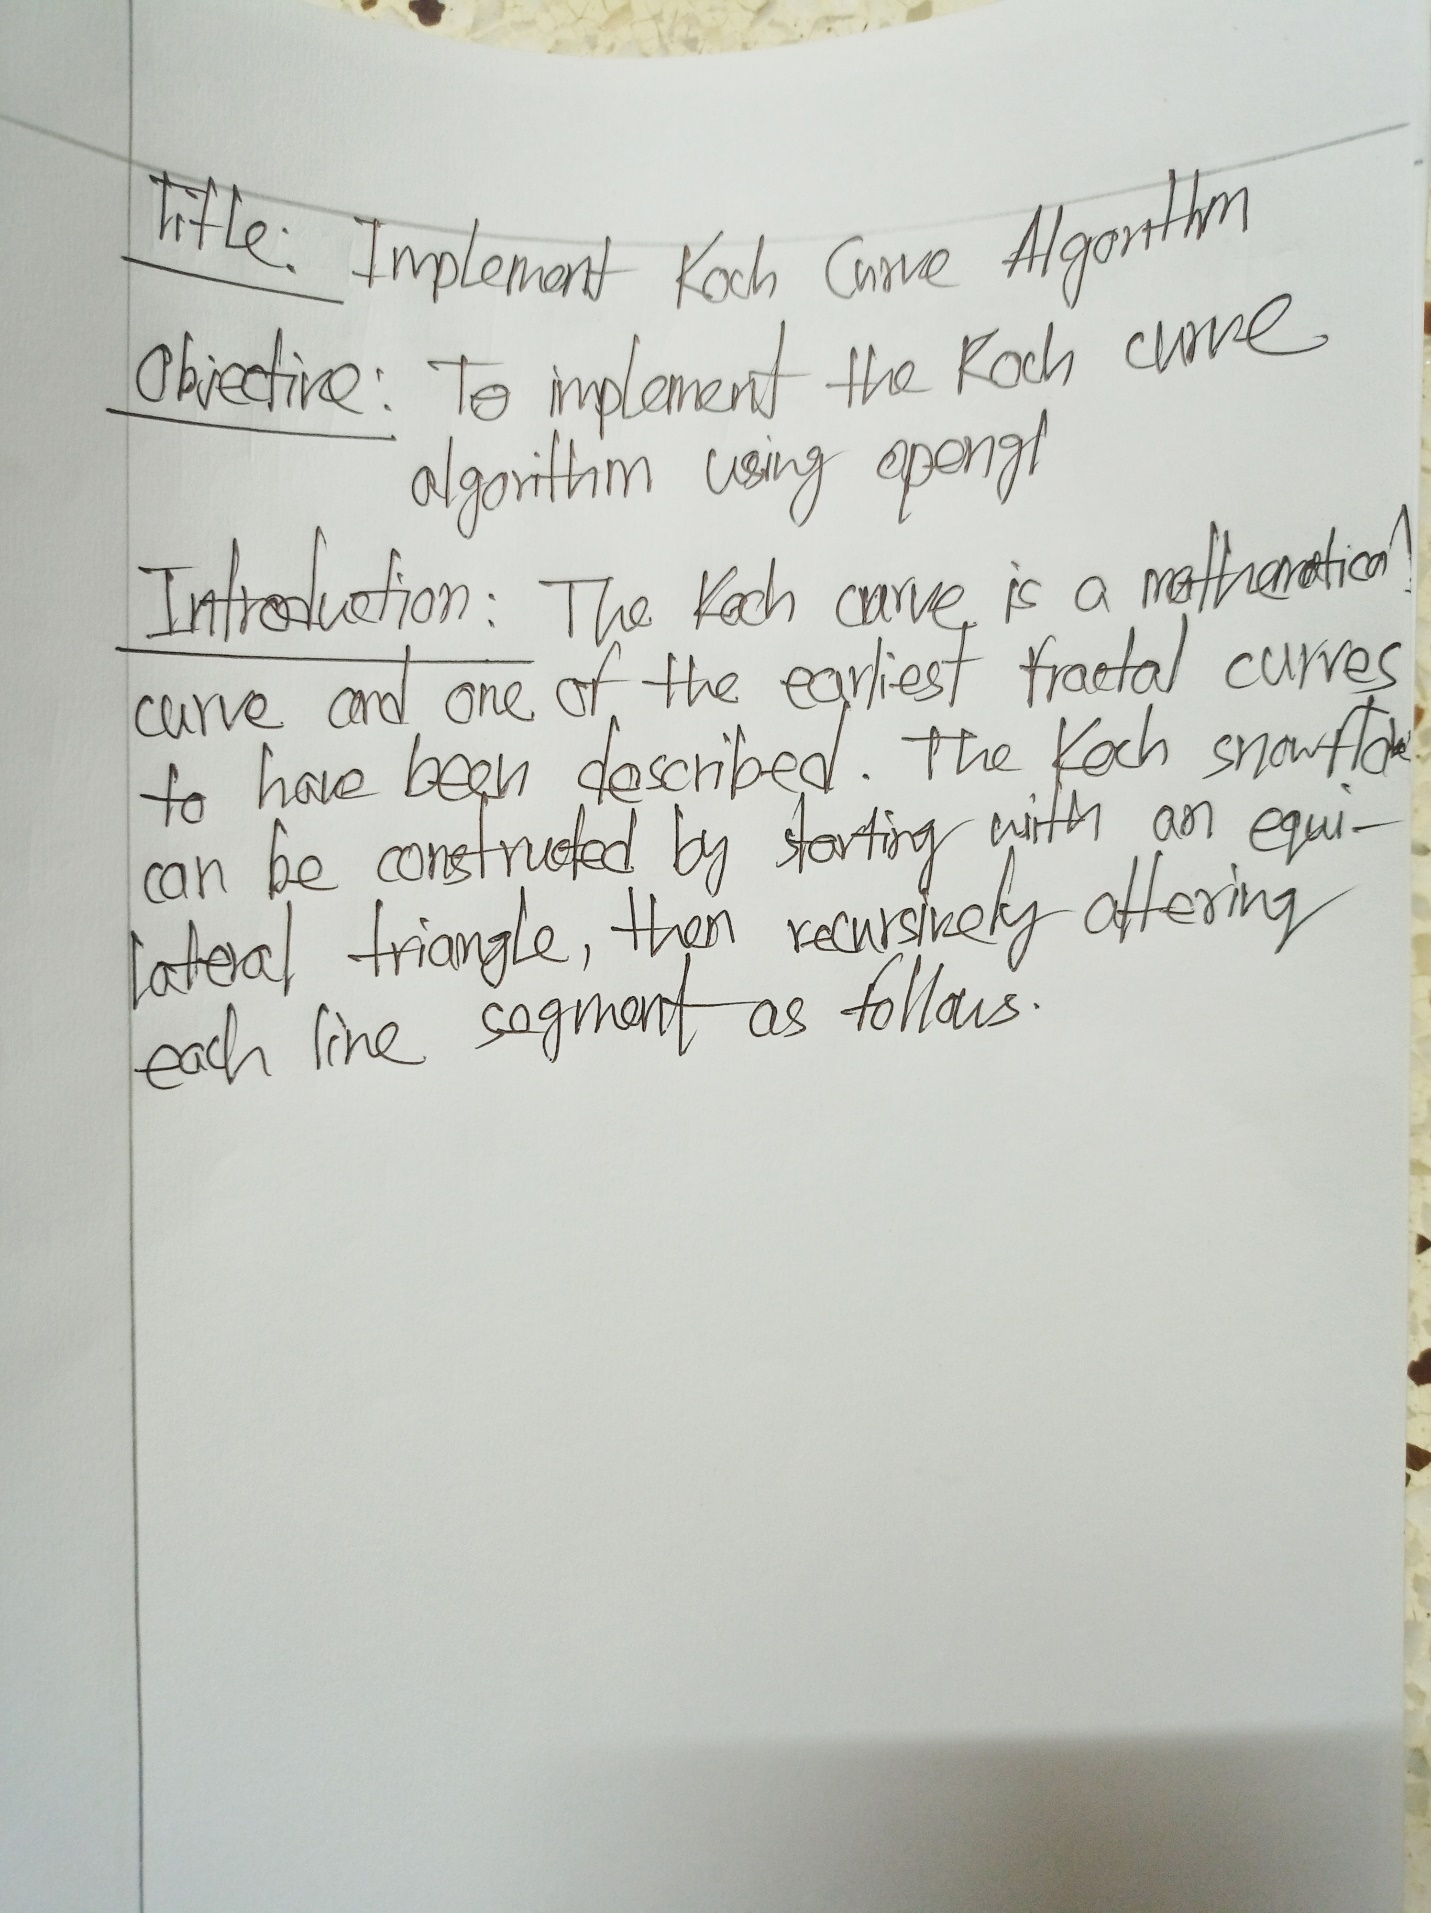 Title: Implement Koch Curve Algorithm
Objective: To implement the Koch curve
algorithm using opengl
Introduction: The Koch curve is a mathematical
curve and one of the earliest fractal curves
to have been described. The Koch snowflake
can be constructed by starting with an equi-
lateral triangle, then recursively altering
each line segment as follows.